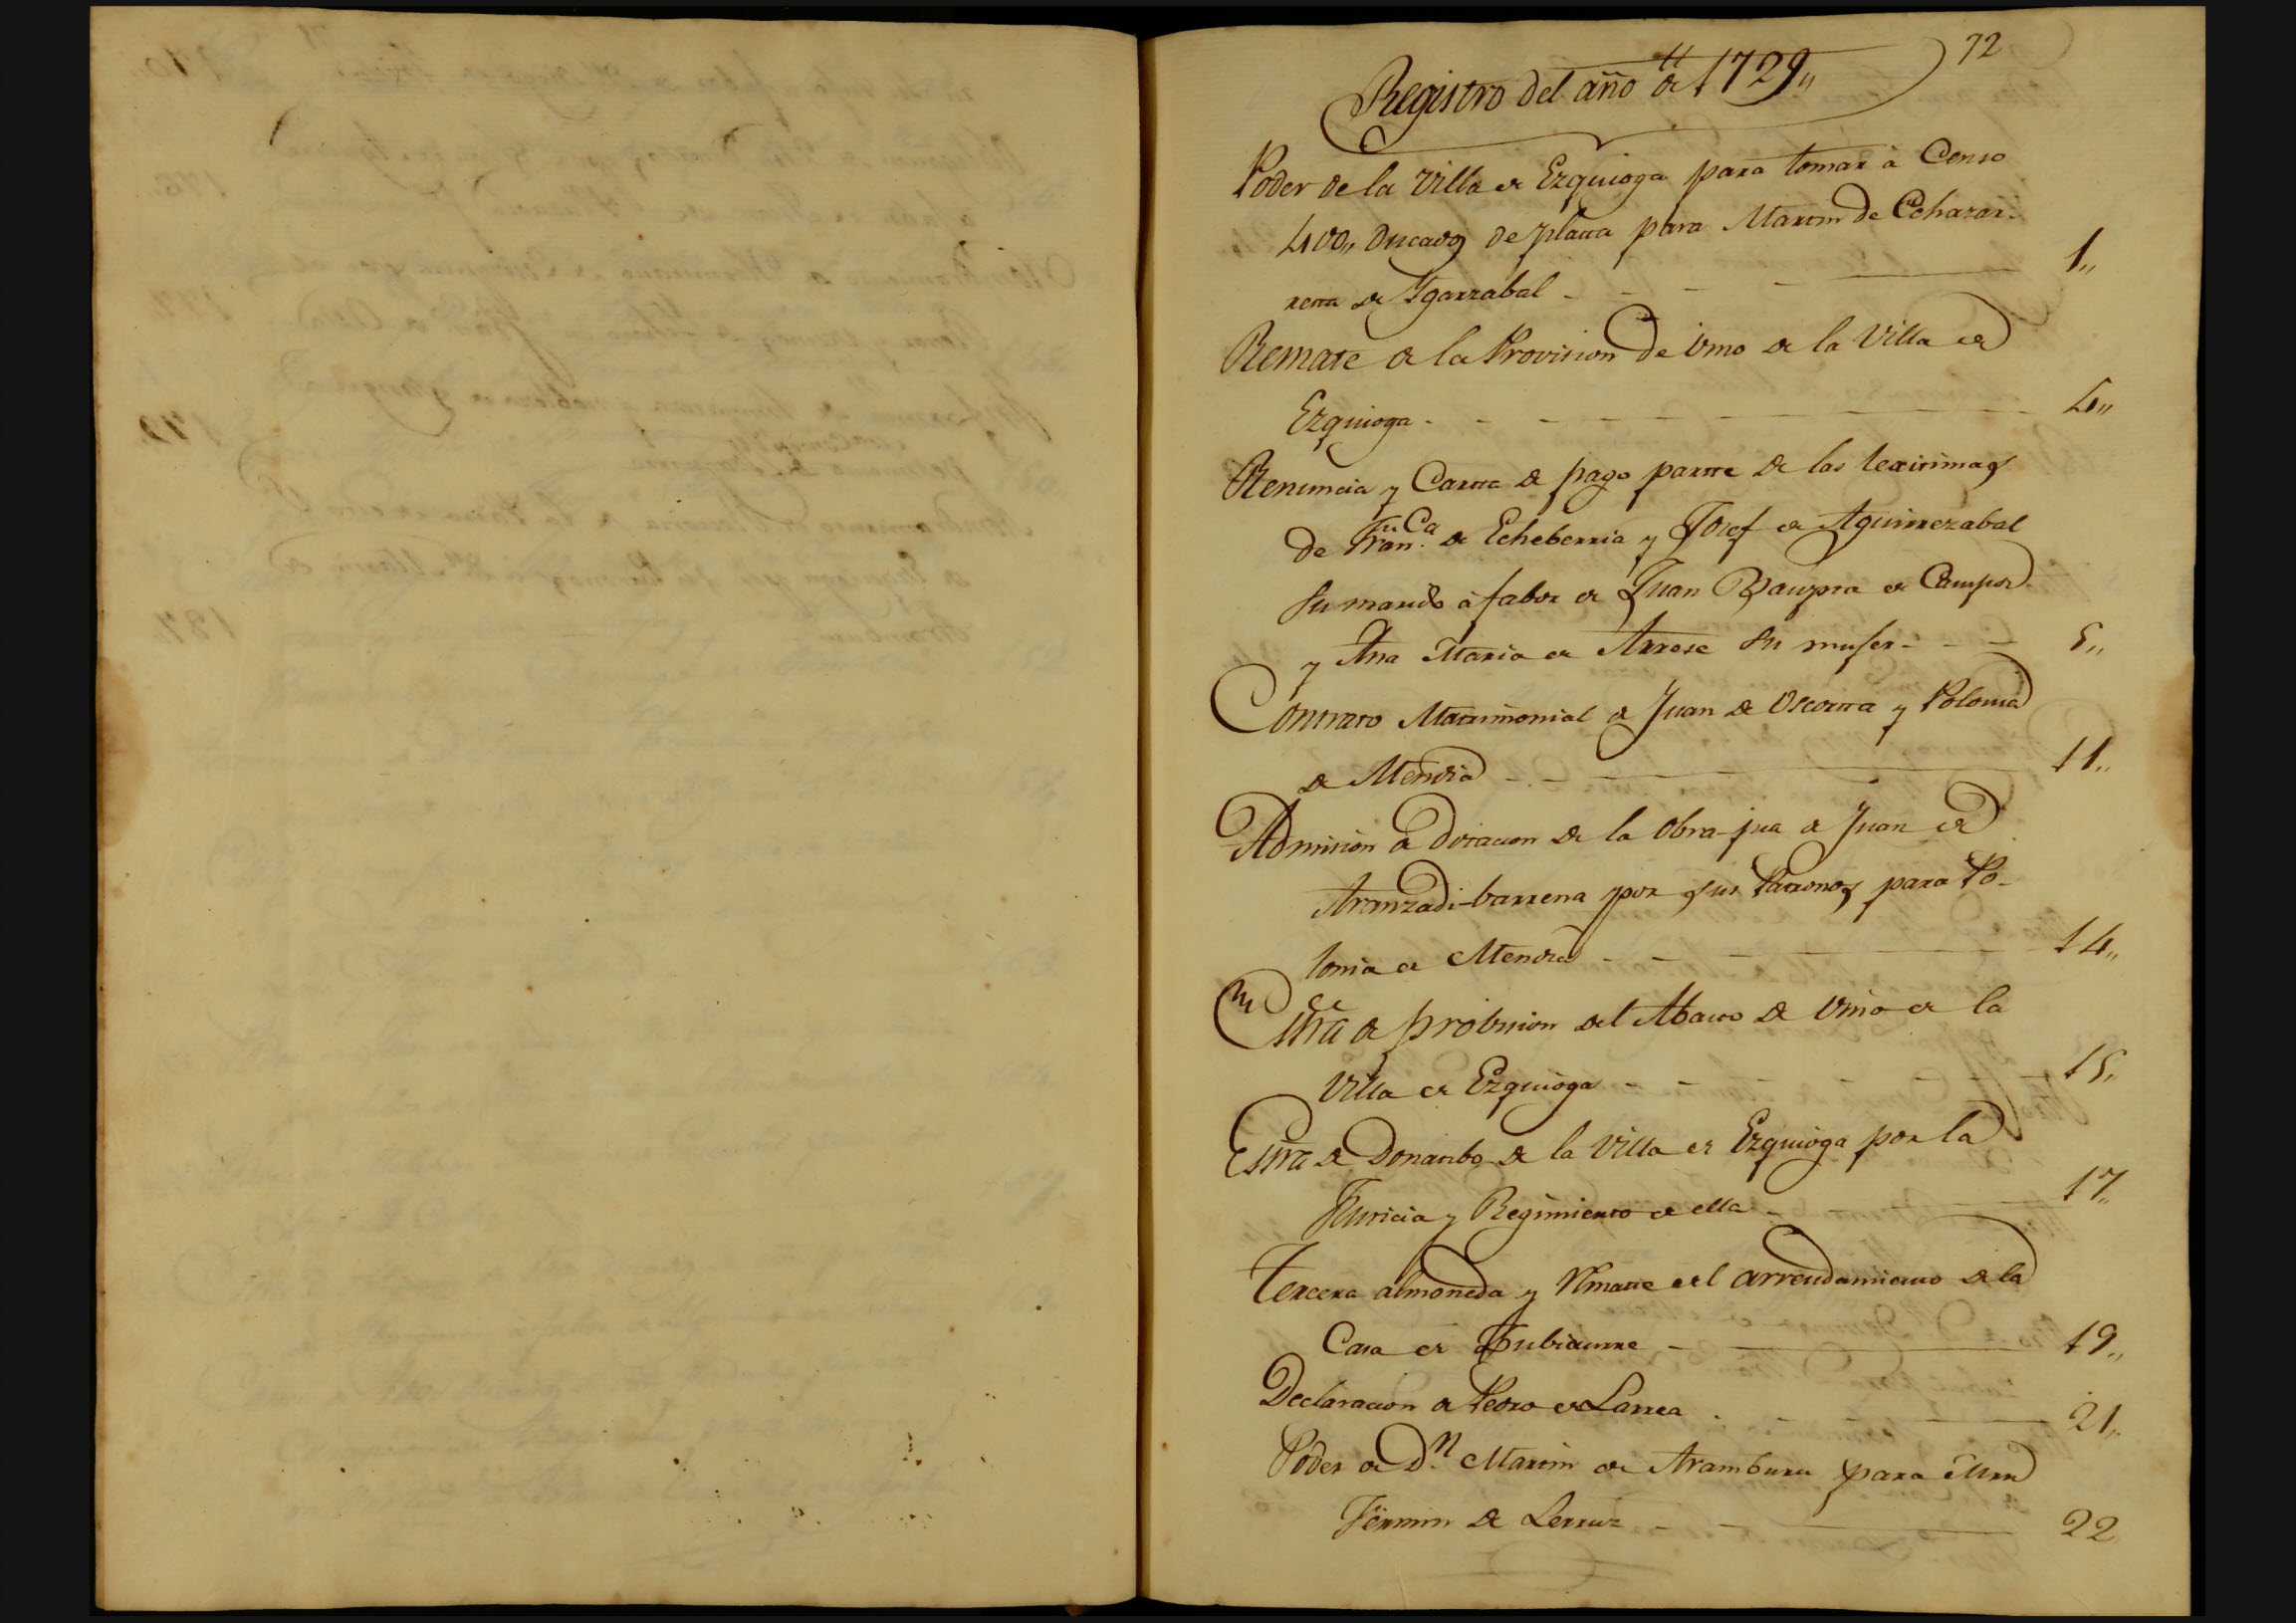 72
Registro del año de 1729,,
Poder de la Villa de Ezquioga para tomar à Censo
400,, Ducados de platta para Martin de Echazar-
retta de Ygarzabal - - - 1,,
Remate de la Provision de vino de la Villa de
Ezquioga - - - 4,,
Renuncia y Cartta de pago partte de las lexitimas
de Fran.ca de Echeberria y Josef de Aguirrezabal
su marido à fabor de Juan Baupta de Campos
y Ana Maria de Arrese su muger - - - 5,,
Contrato Matrimonial de Juan de Oscotta y Polonia
de Mendia - - - 11,,
Admision à dotacion de la Obra-pia de Juan de
Aranzadi-barrena por sus Patronos para Po-
lonia de Mendia - - - 14,,
Essra de probision del Abasto de Vino de la
Villa de Ezquioga - - - 15,,
Essra de Donatibo de la Villa de Ezquioga por la
Justicia y Regimiento de ella - - - 17,,
Tercera almoneda y Rmatte del arrendamiento de la
Casa de - - - 19,,
Declaracion de Pedro de Larrea - - - 21,,
Poder de D.n Martin de Aramburu para
Fermin de - - - 22